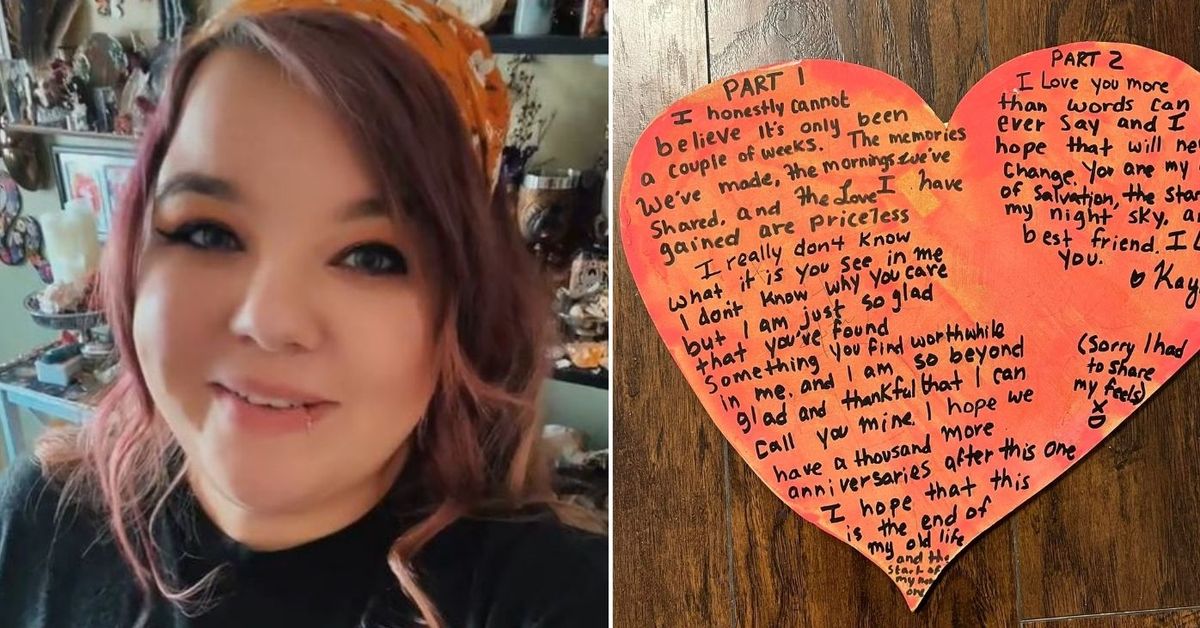 PART 1
I honestly cannot
believe it's only been
a couple of weeks. The memories
We've made, the mornings we've
Shared, and the Love I have
gained are priceless
I really don't know
what it is you see in me
I don't know why you care
but I am just so glad
that you've found
Something you find worthwhile
in me. and I am so beyond
glad and thankful that I can
Call you mine. I hope we
have a thousand more
anniversaries after this one
I hope that this
is the end of
my old life
and the
start of
my new
one
PART 2
I Love you more
than words can
ever say and I
hope that will
Change. You are my
of salvation, the
my night sky,
best friend. I
you.
(Sorry I had
to share
my feels)
XD